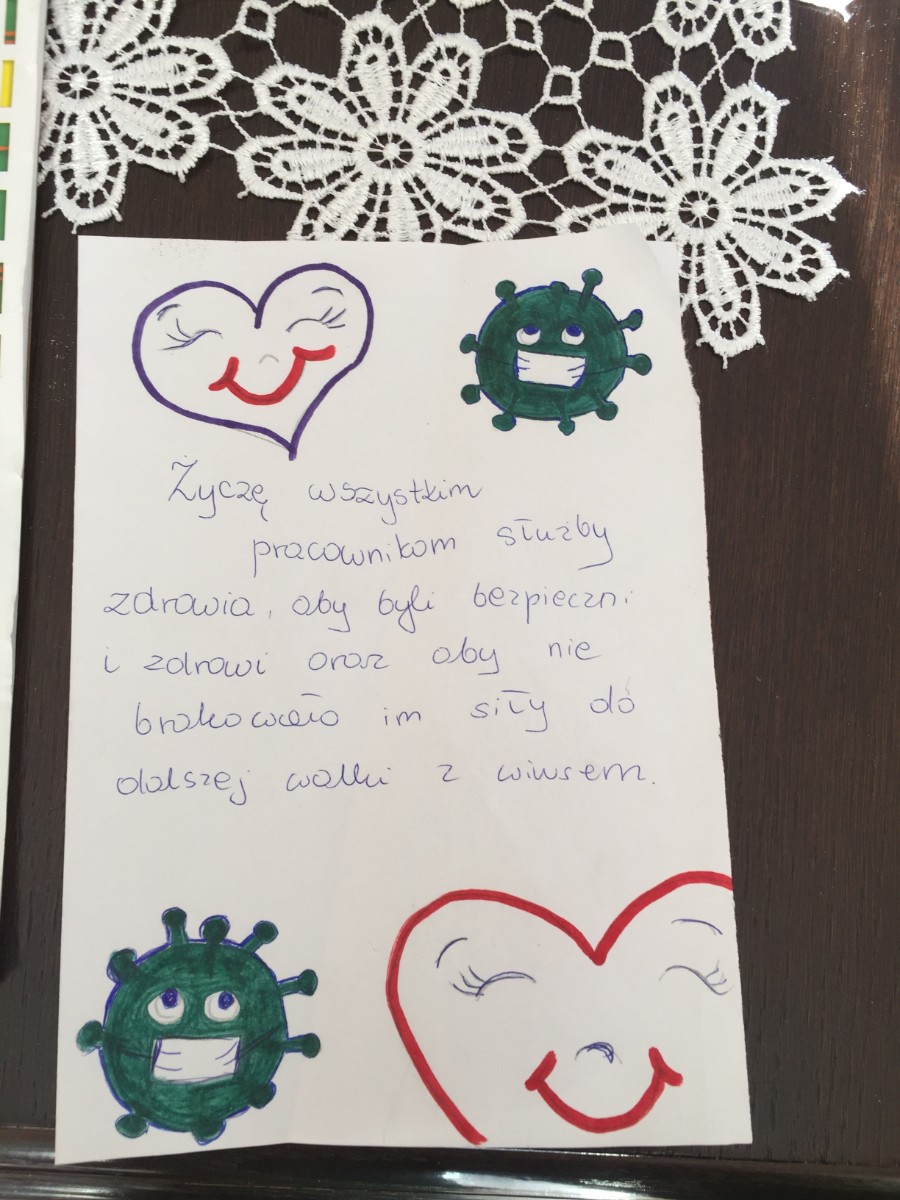 Życzę wszystkim
pracownikom służby
zdrowia, aby byli bezpieczni
i zdrowi oraz aby nie
brakowało im siły do
dalszej walki z wirusem.